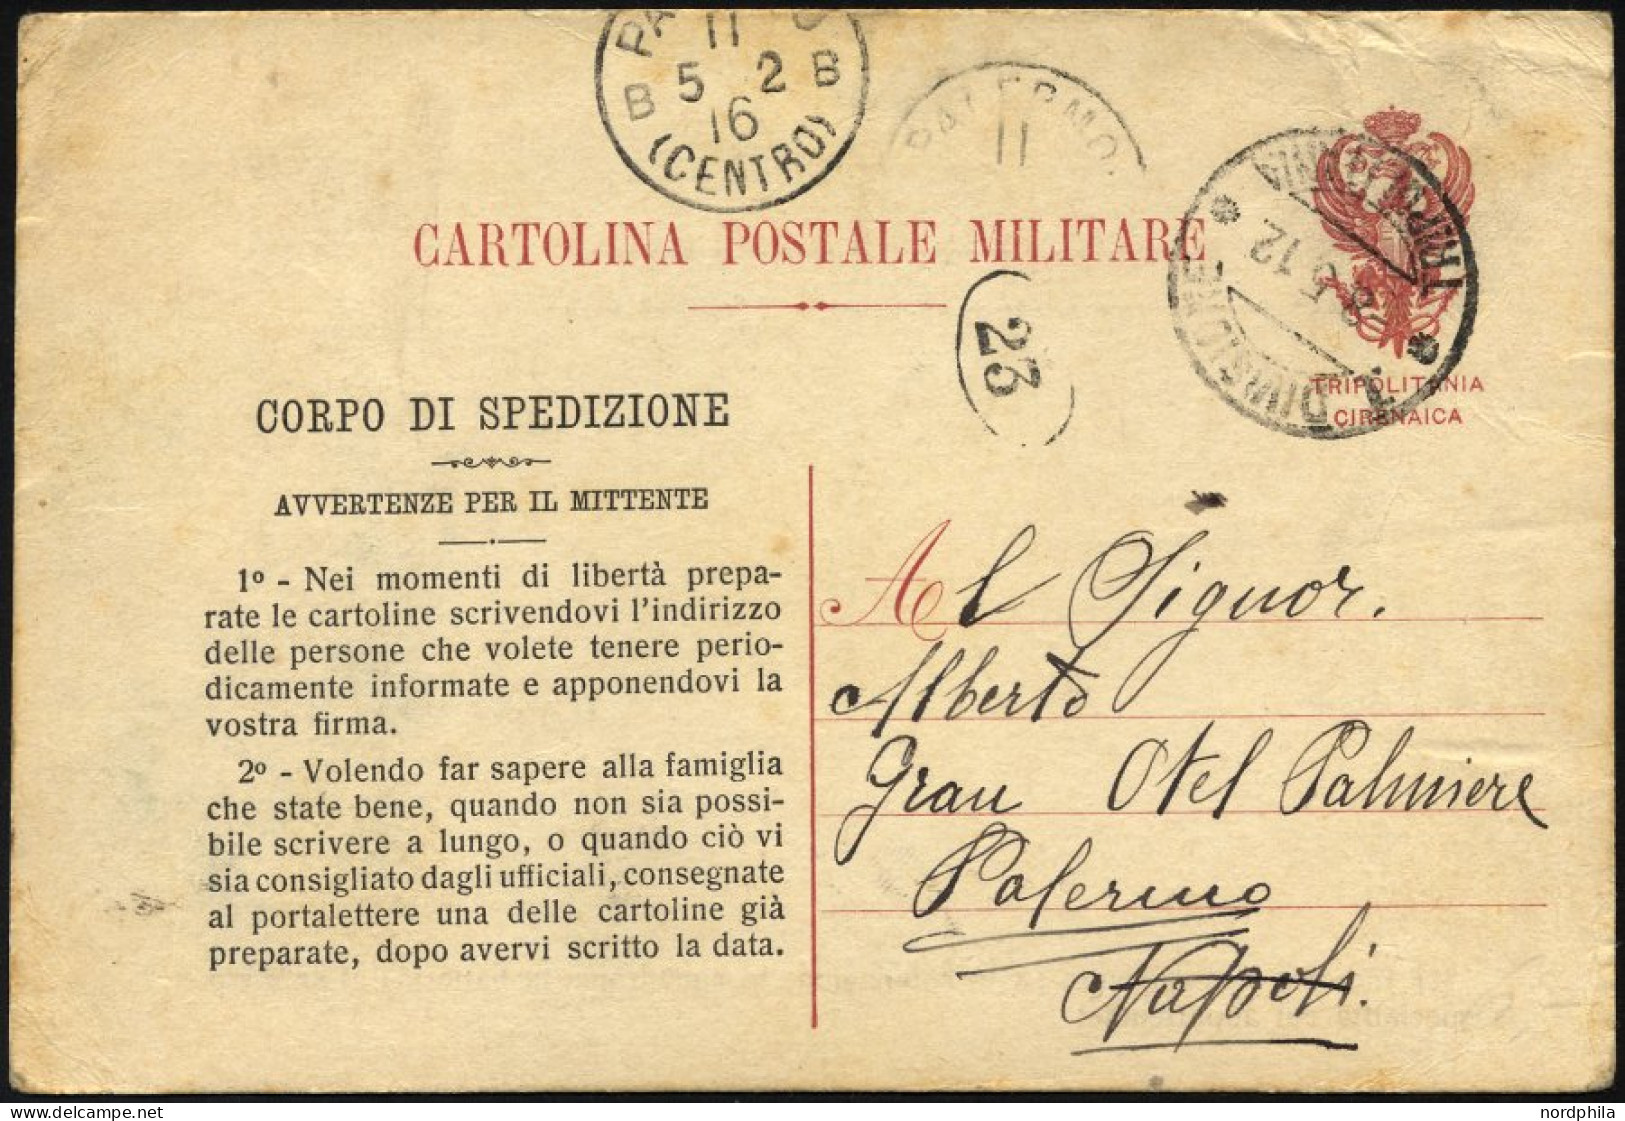 11
5 2
B B
16
(CENTRO)
PALERMO
11
CARTOLINA POSTALE MILITARE
TRIPOLITANIA
8.5.12
DIVISIONE
23
TRIPOLITANIA
CIRENAICA
CORPO DI SPEDIZIONE
AVVERTENZE PER IL MITTENTE
1º - Nei momenti di libertà prepa-
rate le cartoline scrivendovi l'indirizzo
delle persone che volete tenere perio-
dicamente informate e apponendovi la
vostra firma.
2º - Volendo far sapere alla famiglia
che state bene, quando non sia possi-
bile scrivere a lungo, o quando ciò vi
sia consigliato dagli ufficiali, consegnate
al portalettere una delle cartoline già
preparate, dopo avervi scritto la data.
Al Signor.
Alberto
Gran Otel Palmiere
Palermo
Napoli.
nordphila